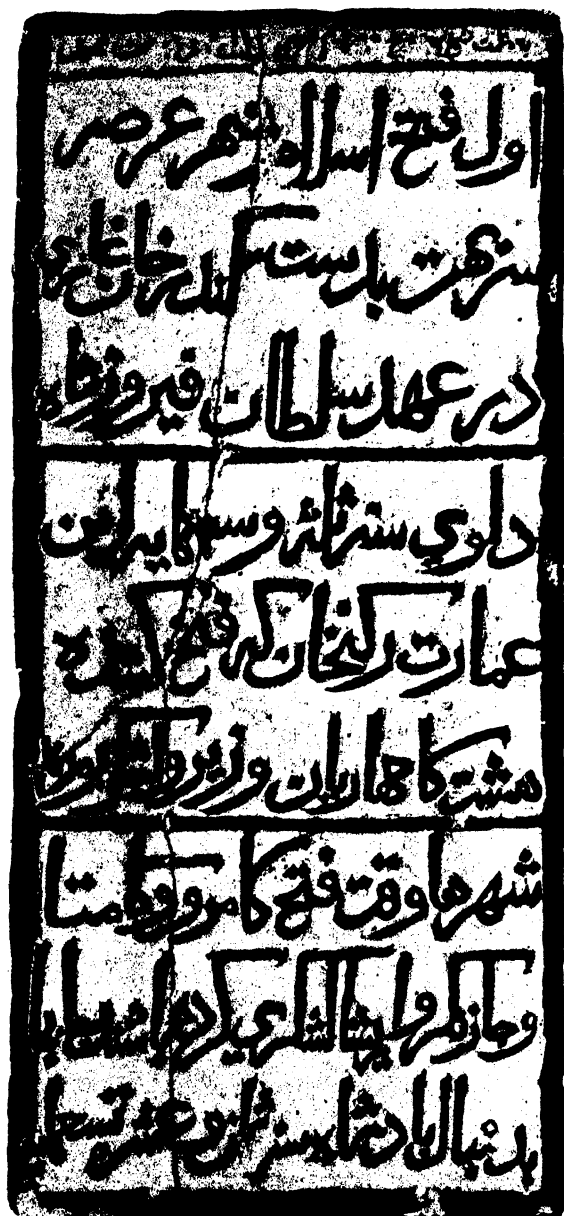 اول فتح اسلام شهر عرصه
سریهت بدست سکندر خان غازی
در عهد سلطان فیروز شاه
دلوی سنه ثلث و سبعمایه این
عمارت رکنخان که فتح کننده
هشت کامهاریان وزیر و لشکر
شهرها وقت فتح کامرو و کامتا
و جازنکر و اریشا لشکری کرده باشند جابجا
بدنبال پادشاه سنه ثمان و عشر و تسعمایه